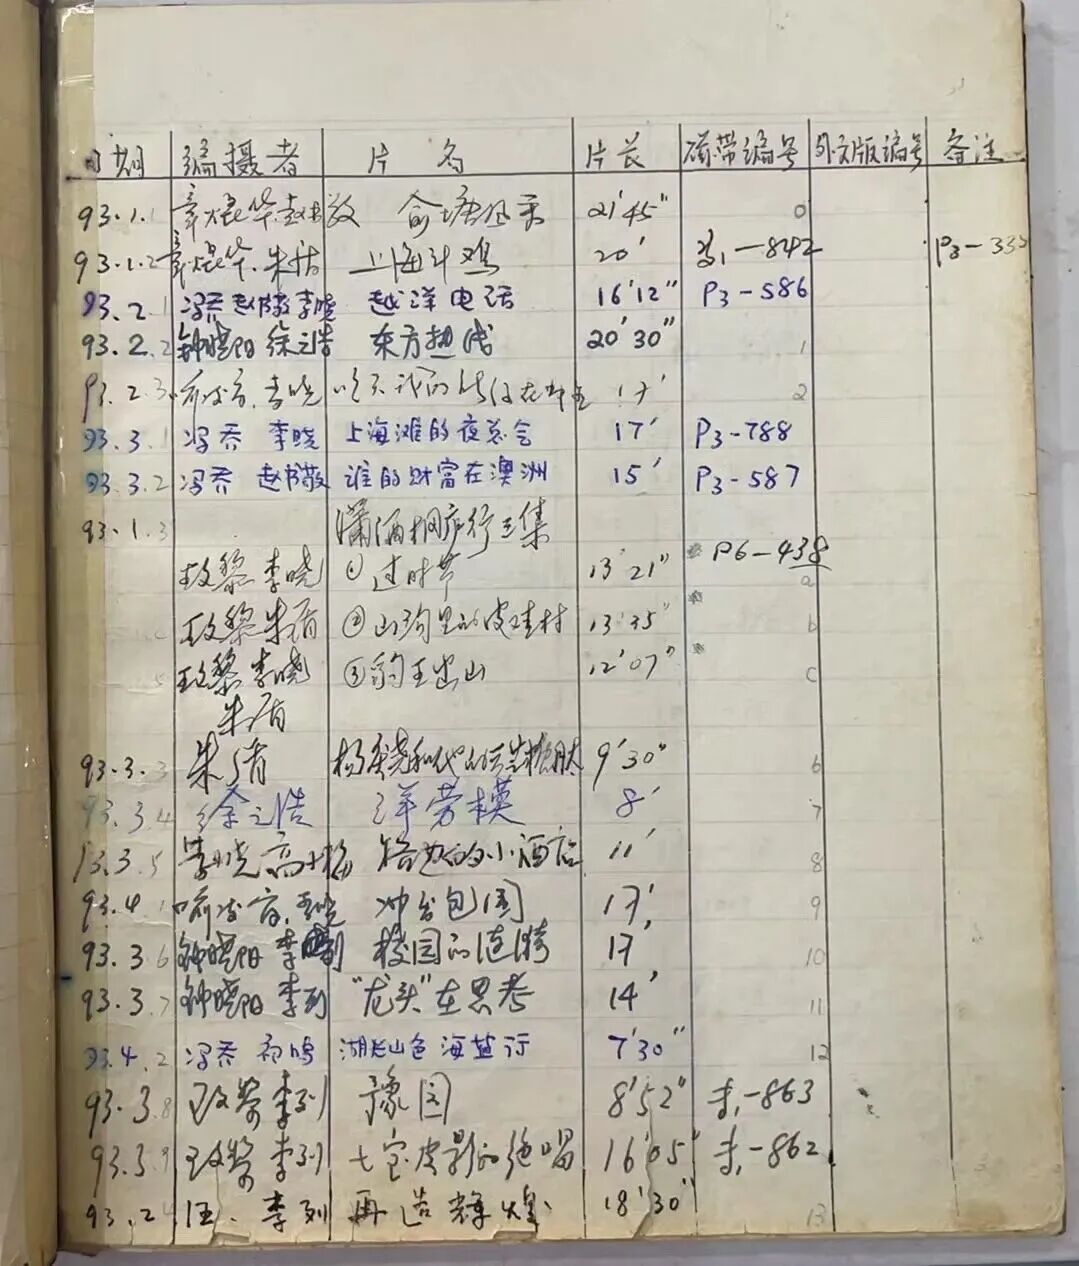 日期 编摄者 片名 片长 磁带编号 外文版编号 备注
93.1.1 章焜华.赵书敬 俞塘风采 21'45" 0
93.1.2 章焜华.朱盾 上海斗鸡 20' -842 P3-332
93.2.1 冯乔 赵书敬 李晓 越洋电话 16'12" P3-586
93.2.2 钟晓阳 徐之浩 东方热线 20'30" 1
93.2.3 李晓 17' 2
93.3.1 冯乔 李晓 上海滩的夜总会 17' P3-788
93.3.2 冯乔 赵书敬 谁的财富在澳洲 15' P3-587
93.1.3 潇洒桐庐行三集
P6-438
李晓 ①过时节 13'21" a
朱盾 ②山沟里的皮影村 13'35" b
李晓 ③豹王出山 12'07" c
朱盾
93.3.3 朱盾 9'30" 6
93.3.4 徐之浩 洋劳模 8' 7
93.3.5 李晓 路边的小酒店 11' 8
93.4.1 冲出包围 17' 9
93.3.6 钟晓阳 李列 校园的涟漪 17' 10
93.3.7 钟晓阳 李列 "龙头"在思考 14' 11
93.4.2 冯乔 湖光山色海盐行 7'30" 12
93.3.8 李列 豫园 8'52" -863
93.3.9 李列 七宝皮影的绝唱 16'05" -862
93.2.4 汪. 李列 再造辉煌 18'30" 13